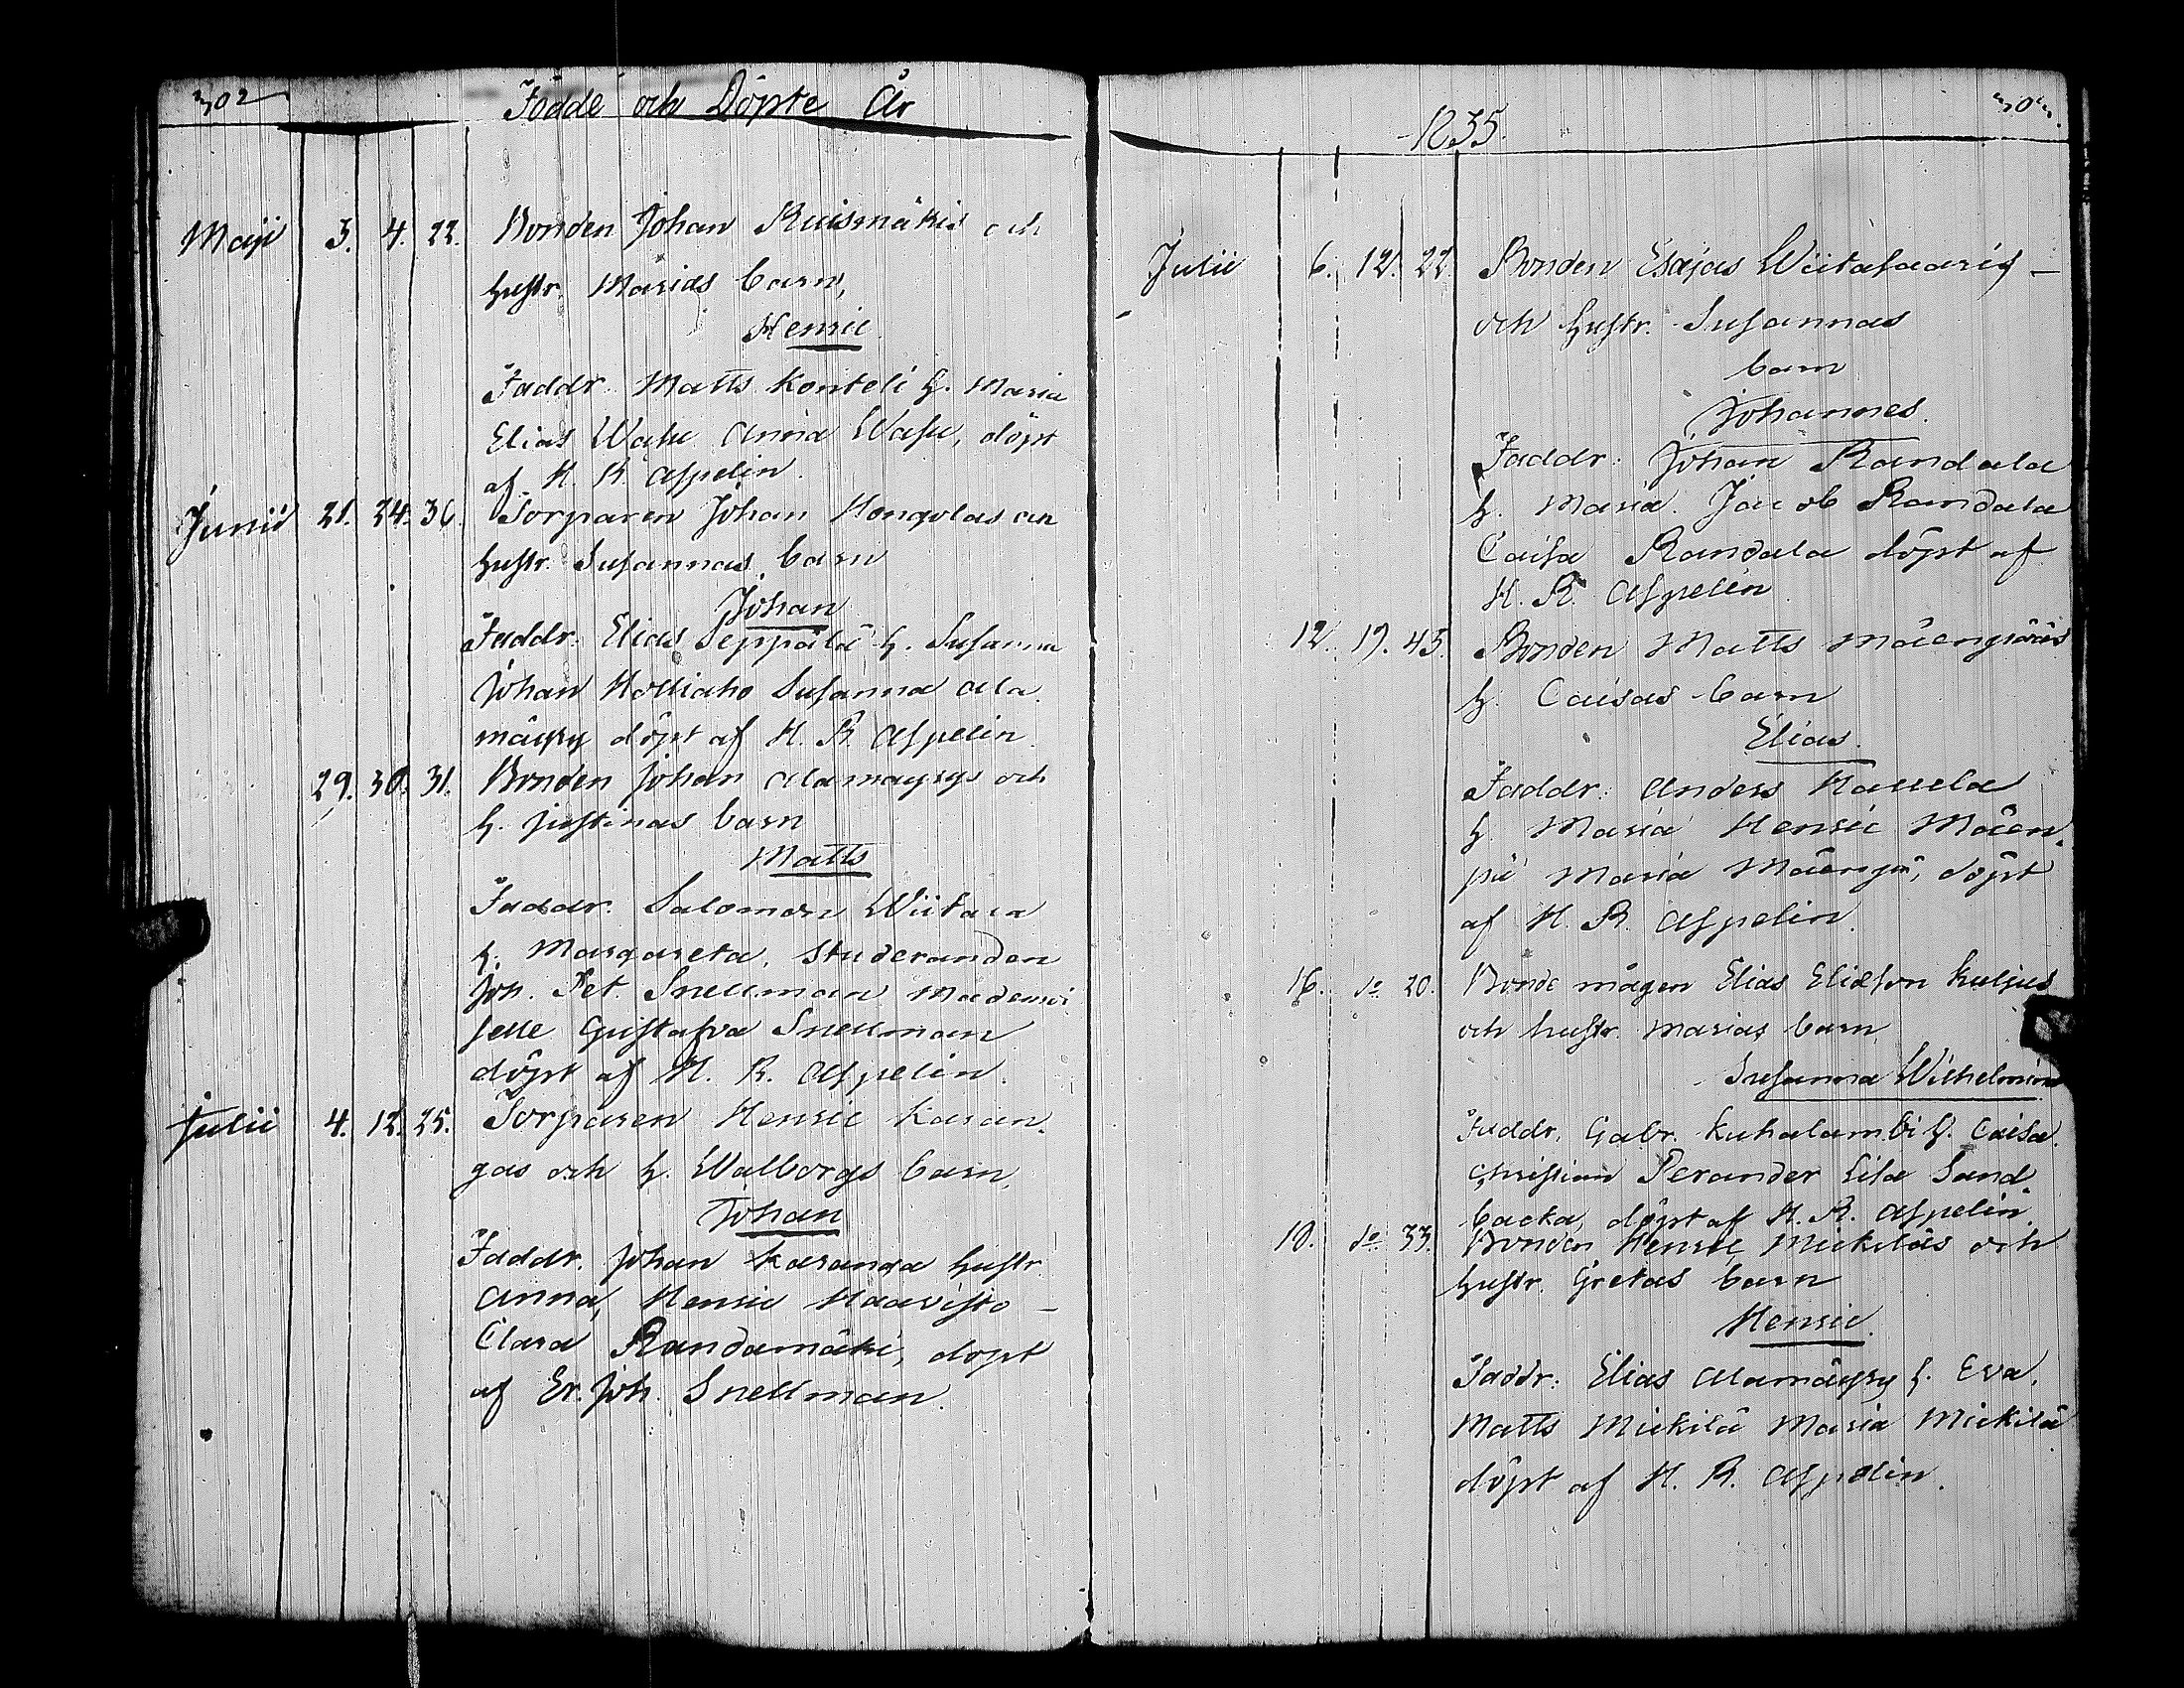 302
Födde och Döpte År
Maji 3. 4. 22. Bonden Johan Ruismäkis och
hustr. Marias barn,
Henric
Faddr. Matts Konteli h. Maria
Elias Wasu Anna Wasu, döpt
af H. R. Aspelin.
Junii 21. 24. 36. Torparen Johan Hongolas och
hustr. Susannas barn
Johan
Faddr. Elias Seppälä h. Susanna
Johan Holliaho Susanna Ala
mäyry döpt af H. R. Aspelin.
29. 30. 31. Bonden Johan Alamayrys och
h. Justinas barn
Matts
Faddr. Salomon Wiitala
h. Margareta, Studeranden
Joh. Pet. Snellman Mademoi
selle Gustafva Snellman
döpt af H. R. Aspelin.
Julii 4. 12. 25. Torparen Henric Karan
gas och h. Walborgs barn,
Johan
Faddr. Johan Karanga hustr.
Anna, Henric Haavisto –
Clara Randamäki, döpt
af Er. Joh. Snellman.
303.
1835.
Julii 6. 12. 22. Bonden Esajas Wiitasaaris –
och hustr. Susannas
barn
Johannes.
Faddr: Johan Randala
h. Maria. Jacob Randala
Caisa Randala döpt af
H. R. Aspelin
12. 19. 43. Bonden Matts Mäenpääs
h. Caisas barn
Elias.
Faddr: Anders Hauela
h. Maria Henric Mäen
pä Maria Mäenpä, döpt
af H. R. Aspelin.
16. do 20. Bonde mågen Elias Eliasson Kuljus
och hustr. Marias barn,
Susanna Wilhelmina
Faddr. Gabr. Kuhalambi h. Caisa.
Christian Perander Lisa Sand
backa, döpt af H. R. Aspelin.
18. do 33. Bonden Henric Mickiläs och
hustr. Gretas barn
Henric.
Faddr: Elias Alamäyry h. Eva,
Matts Mickilä Maria Mickilä
döpt af H. R. Aspelin.